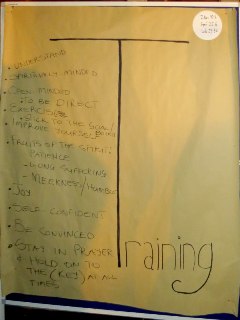 • UNDERSTAND
• SPIRITUALLY MINDED
• OPEN MINDED
• TO BE DIRECT
• EXERCISE
• STICK TO THE GOAL/
IMPROVE YOURSELF
• FRUITS OF THE SPIRIT:
PATIENCE
- LONG SUFFERING
- MEEKNESS/HUMBLE
• JOY
• SELF-CONFIDENT
• BE CONVINCED
• STAY IN PRAYER
& HOLD ON TO
THE (KEY) AT ALL
TIMES
Training